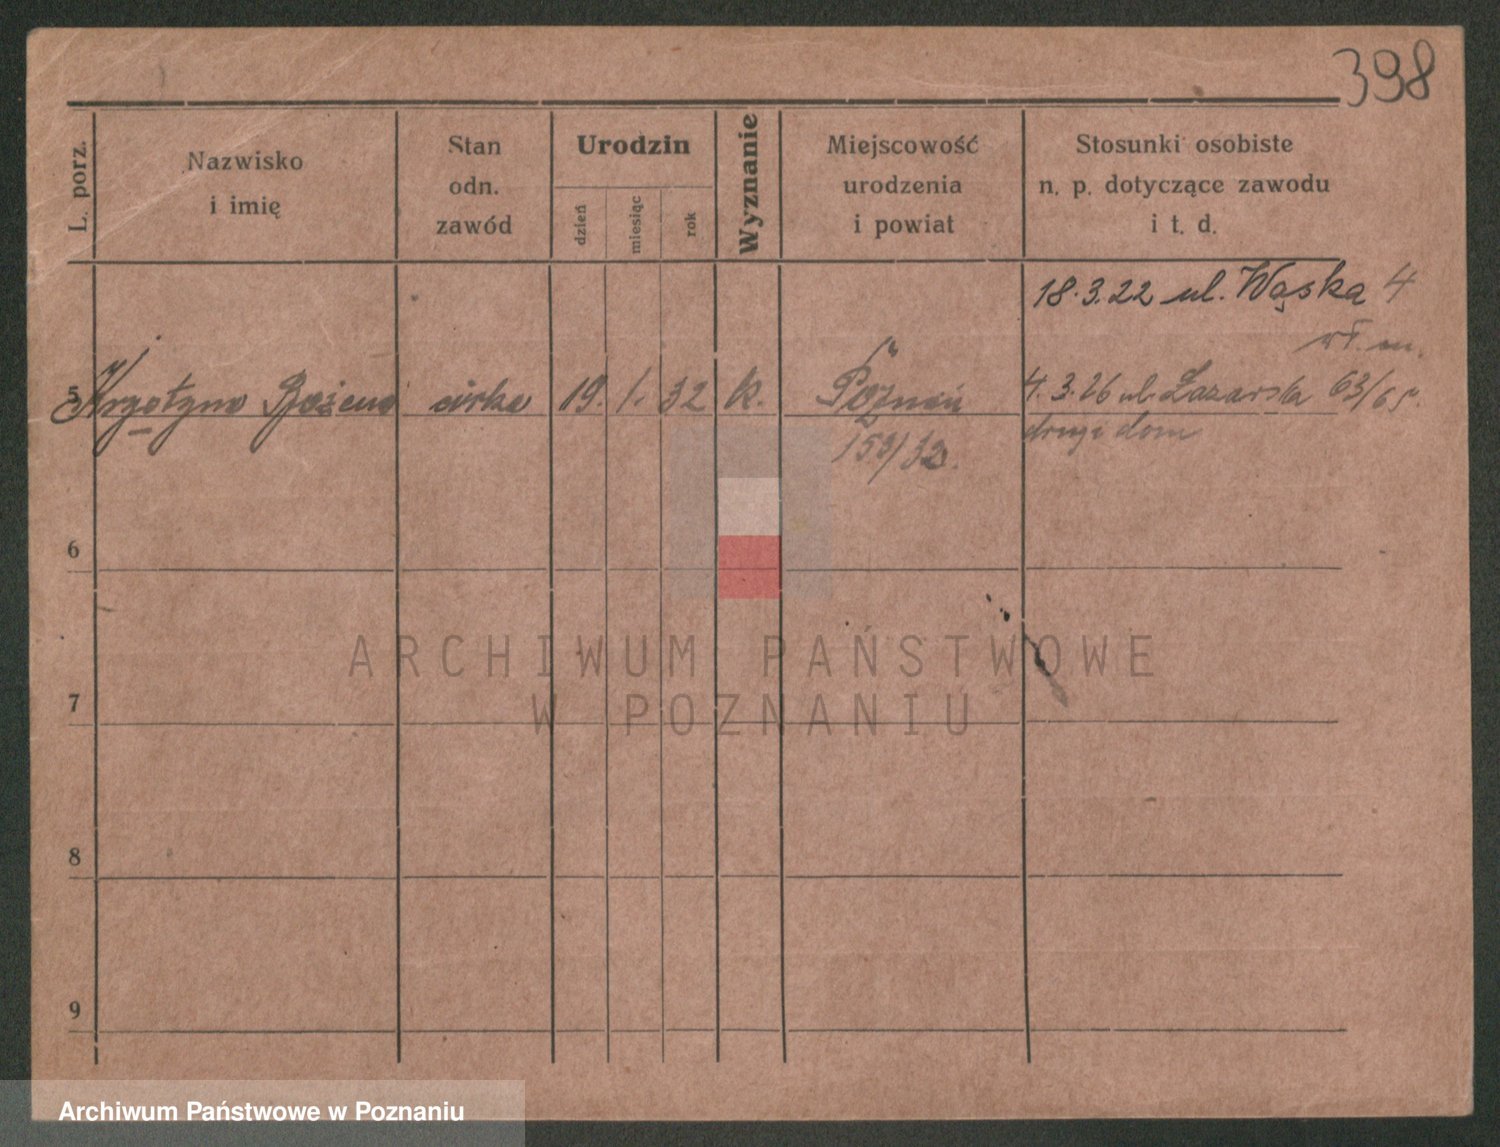 398
L. porz.
Nazwisko
i imię
Stan
odn.
zawód
Urodzin
dzień
miesiąc
rok
Wyznanie
Miejscowość
urodzenia
i powiat
Stosunki osobiste
n. p. dotyczące zawodu
i t. d.
18.3.22 ul. Wąska 4
wł. m.
5 Bożena córka 19. 1. 32 k. Poznań 4.3.26 ul. Łazarska 63/65.
159/32. drugi dom
6
7
8
9
ARCHIWUM PAŃSTWOWE
W POZNANIU
Archiwum Państwowe w Poznaniu